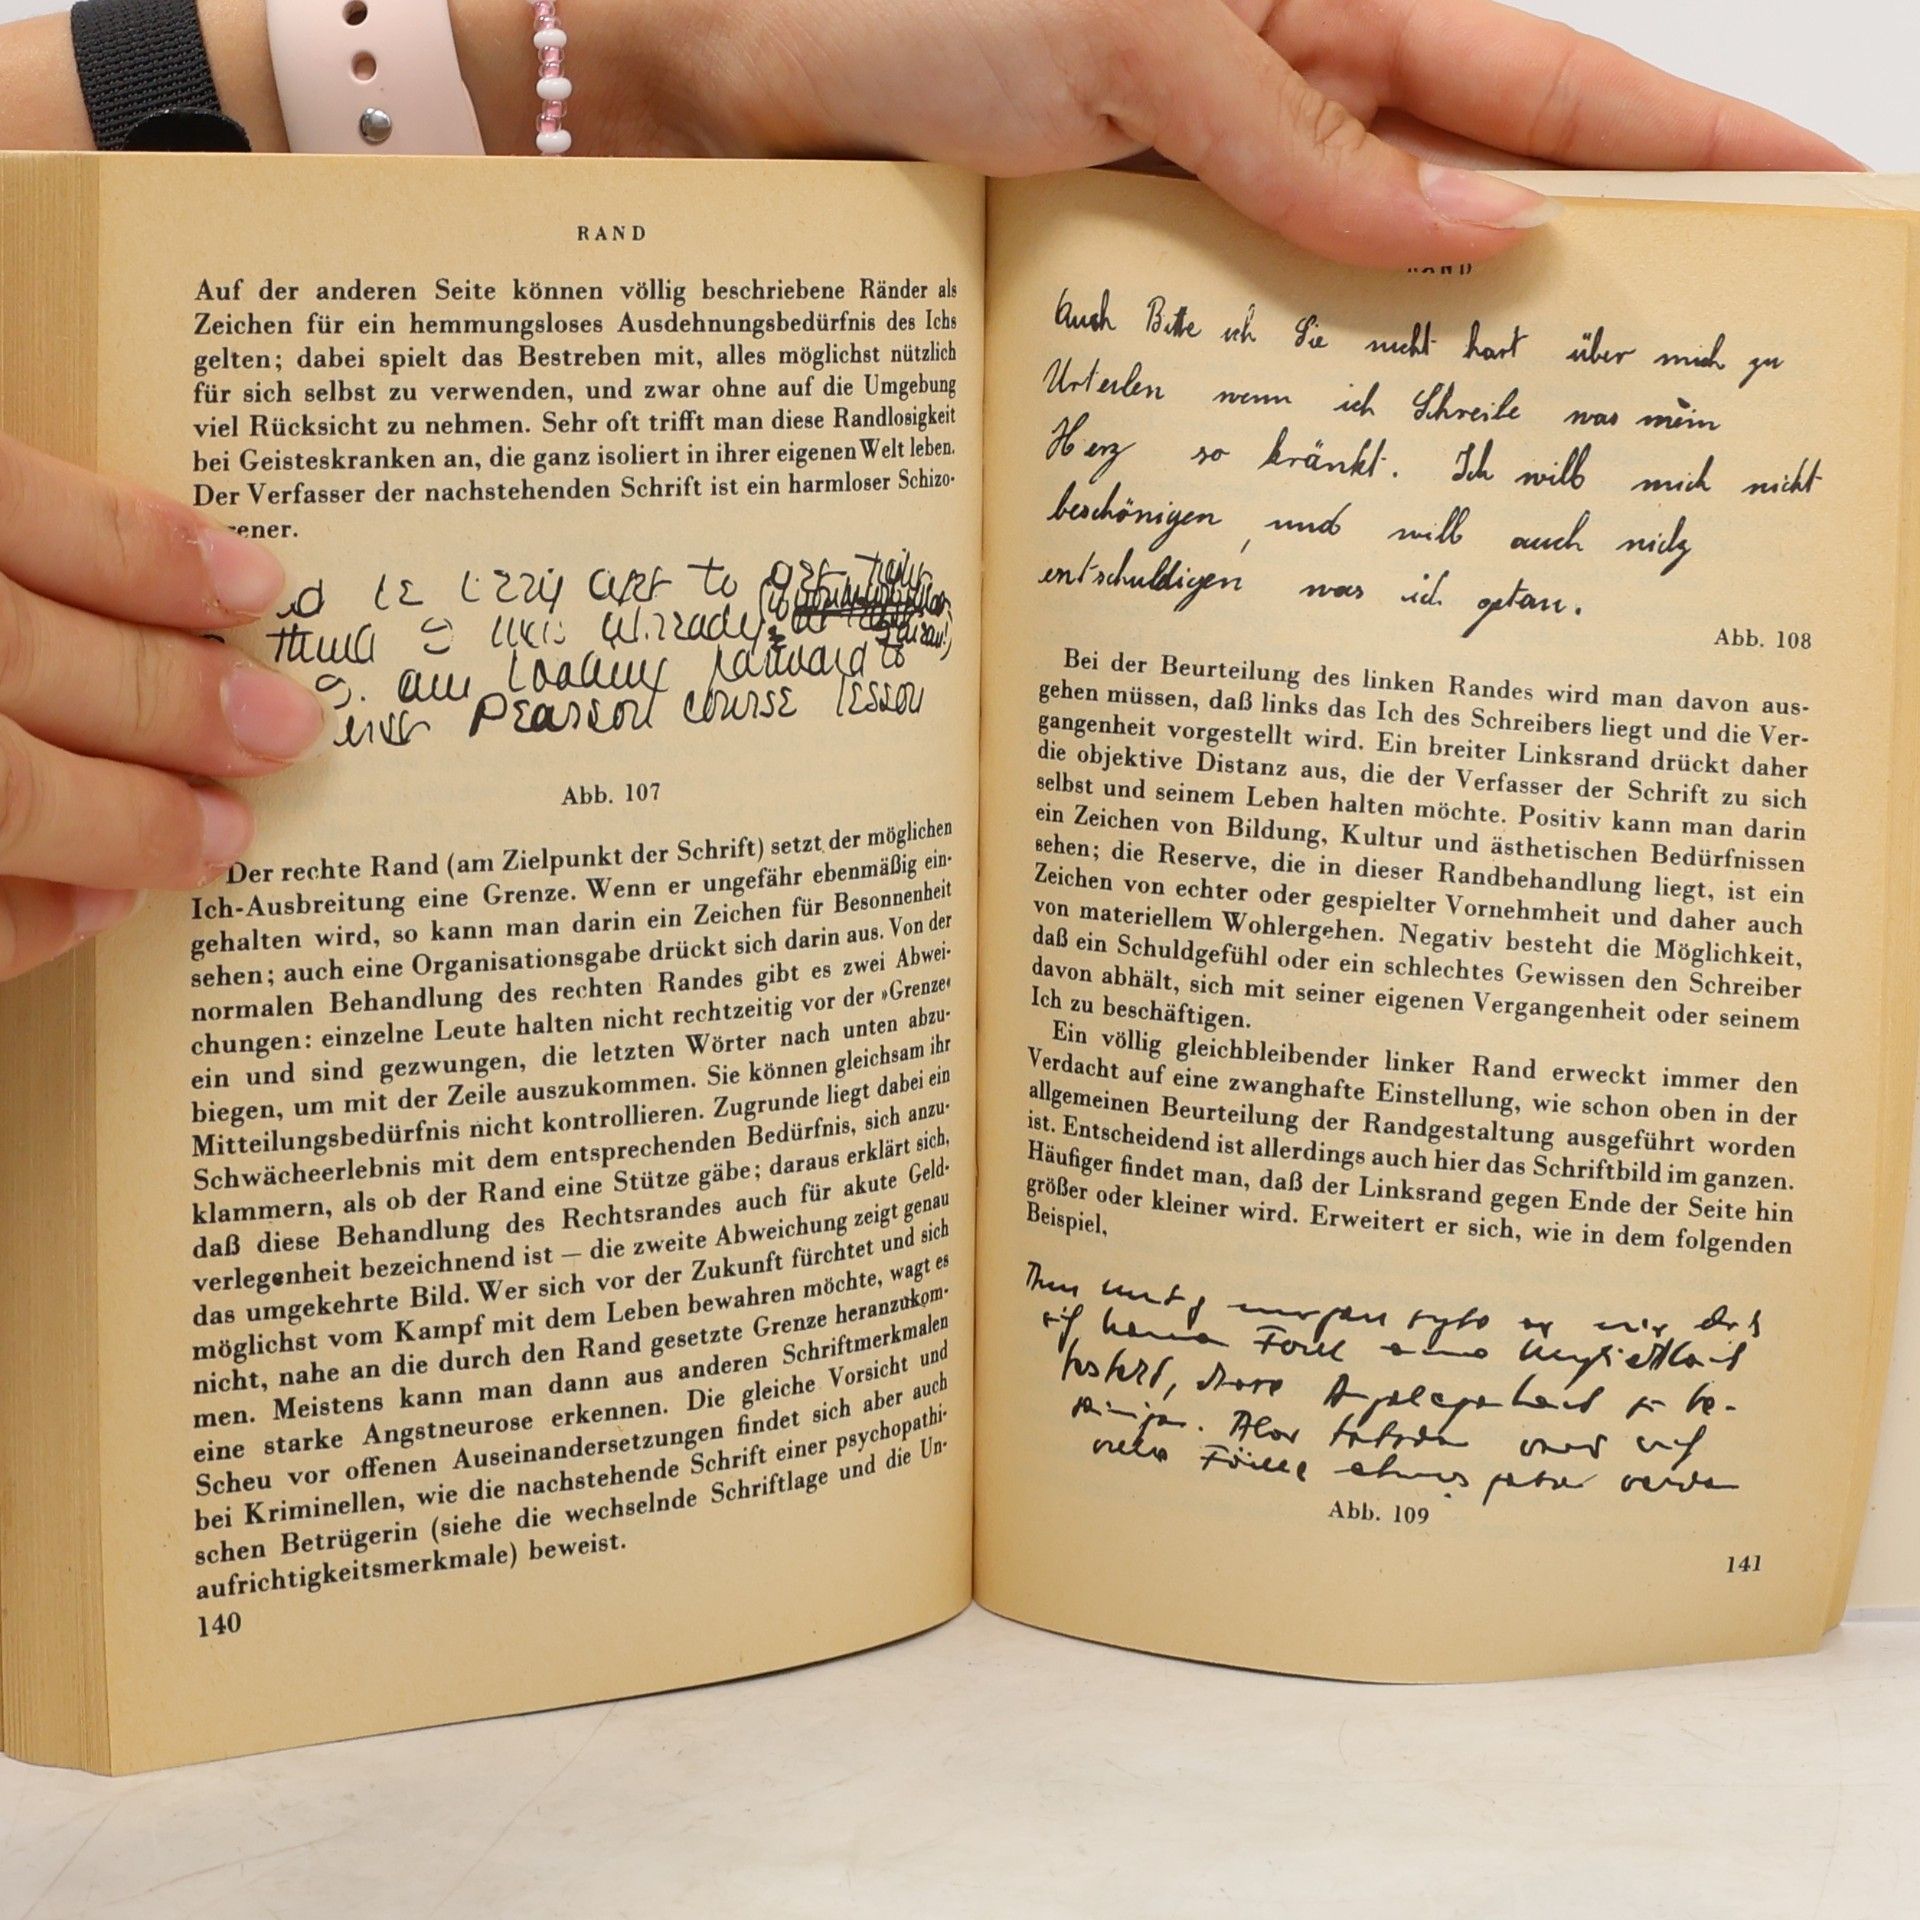 RAND
Auf der anderen Seite können völlig beschriebene Ränder als
Zeichen für ein hemmungsloses Ausdehnungsbedürfnis des Ichs
gelten; dabei spielt das Bestreben mit, alles möglichst nützlich
für sich selbst zu verwenden, und zwar ohne auf die Umgebung
viel Rücksicht zu nehmen. Sehr oft trifft man diese Randlosigkeit
bei Geisteskranken an, die ganz isoliert in ihrer eigenen Welt leben.
Der Verfasser der nachstehenden Schrift ist ein harmloser Schizo-
rener.
to
think
am looking forward to
Pearson course lesson
Abb. 107
Der rechte Rand (am Zielpunkt der Schrift) setzt der möglichen
Ich-Ausbreitung eine Grenze. Wenn er ungefähr ebenmäßig ein-
gehalten wird, so kann man darin ein Zeichen für Besonnenheit
sehen; auch eine Organisationsgabe drückt sich darin aus. Von der
normalen Behandlung des rechten Randes gibt es zwei Abwei-
chungen: einzelne Leute halten nicht rechtzeitig vor der »Grenze«
ein und sind gezwungen, die letzten Wörter nach unten abzu-
biegen, um mit der Zeile auszukommen. Sie können gleichsam ihr
Mitteilungsbedürfnis nicht kontrollieren. Zugrunde liegt dabei ein
Schwächeerlebnis mit dem entsprechenden Bedürfnis, sich anzu-
klammern, als ob der Rand eine Stütze gäbe; daraus erklärt sich,
daß diese Behandlung des Rechtsrandes auch für akute Geld-
verlegenheit bezeichnend ist – die zweite Abweichung zeigt genau
das umgekehrte Bild. Wer sich vor der Zukunft fürchtet und sich
möglichst vom Kampf mit dem Leben bewahren möchte, wagt es
nicht, nahe an die durch den Rand gesetzte Grenze heranzukom-
men. Meistens kann man dann aus anderen Schriftmerkmalen
eine starke Angstneurose erkennen. Die gleiche Vorsicht und
Scheu vor offenen Auseinandersetzungen findet sich aber auch
bei Kriminellen, wie die nachstehende Schrift einer psychopathi-
schen Betrügerin (siehe die wechselnde Schriftlage und die Un-
aufrichtigkeitsmerkmale) beweist.
140
RAND
Auch Bitte ich Sie nicht hart über mich zu
Urteilen wenn ich Schreibe was mein
Herz so kränkt. Ich will mich nicht
beschönigen, und will auch nicht
entschuldigen was ich getan.
Abb. 108
Bei der Beurteilung des linken Randes wird man davon aus-
gehen müssen, daß links das Ich des Schreibers liegt und die Ver-
gangenheit vorgestellt wird. Ein breiter Linksrand drückt daher
die objektive Distanz aus, die der Verfasser der Schrift zu sich
selbst und seinem Leben halten möchte. Positiv kann man darin
ein Zeichen von Bildung, Kultur und ästhetischen Bedürfnissen
sehen; die Reserve, die in dieser Randbehandlung liegt, ist ein
Zeichen von echter oder gespielter Vornehmheit und daher auch
von materiellem Wohlergehen. Negativ besteht die Möglichkeit,
daß ein Schuldgefühl oder ein schlechtes Gewissen den Schreiber
davon abhält, sich mit seiner eigenen Vergangenheit oder seinem
Ich zu beschäftigen.
Ein völlig gleichbleibender linker Rand erweckt immer den
Verdacht auf eine zwanghafte Einstellung, wie schon oben in der
allgemeinen Beurteilung der Randgestaltung ausgeführt worden
ist. Entscheidend ist allerdings auch hier das Schriftbild im ganzen.
Häufiger findet man, daß der Linksrand gegen Ende der Seite hin
größer oder kleiner wird. Erweitert er sich, wie in dem folgenden
Beispiel,
Abb. 109
141